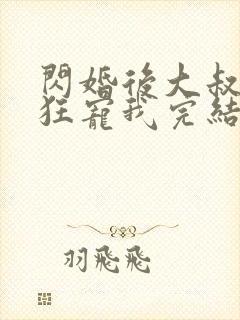 閃婚後大叔
狂寵我完結
羽飛飛